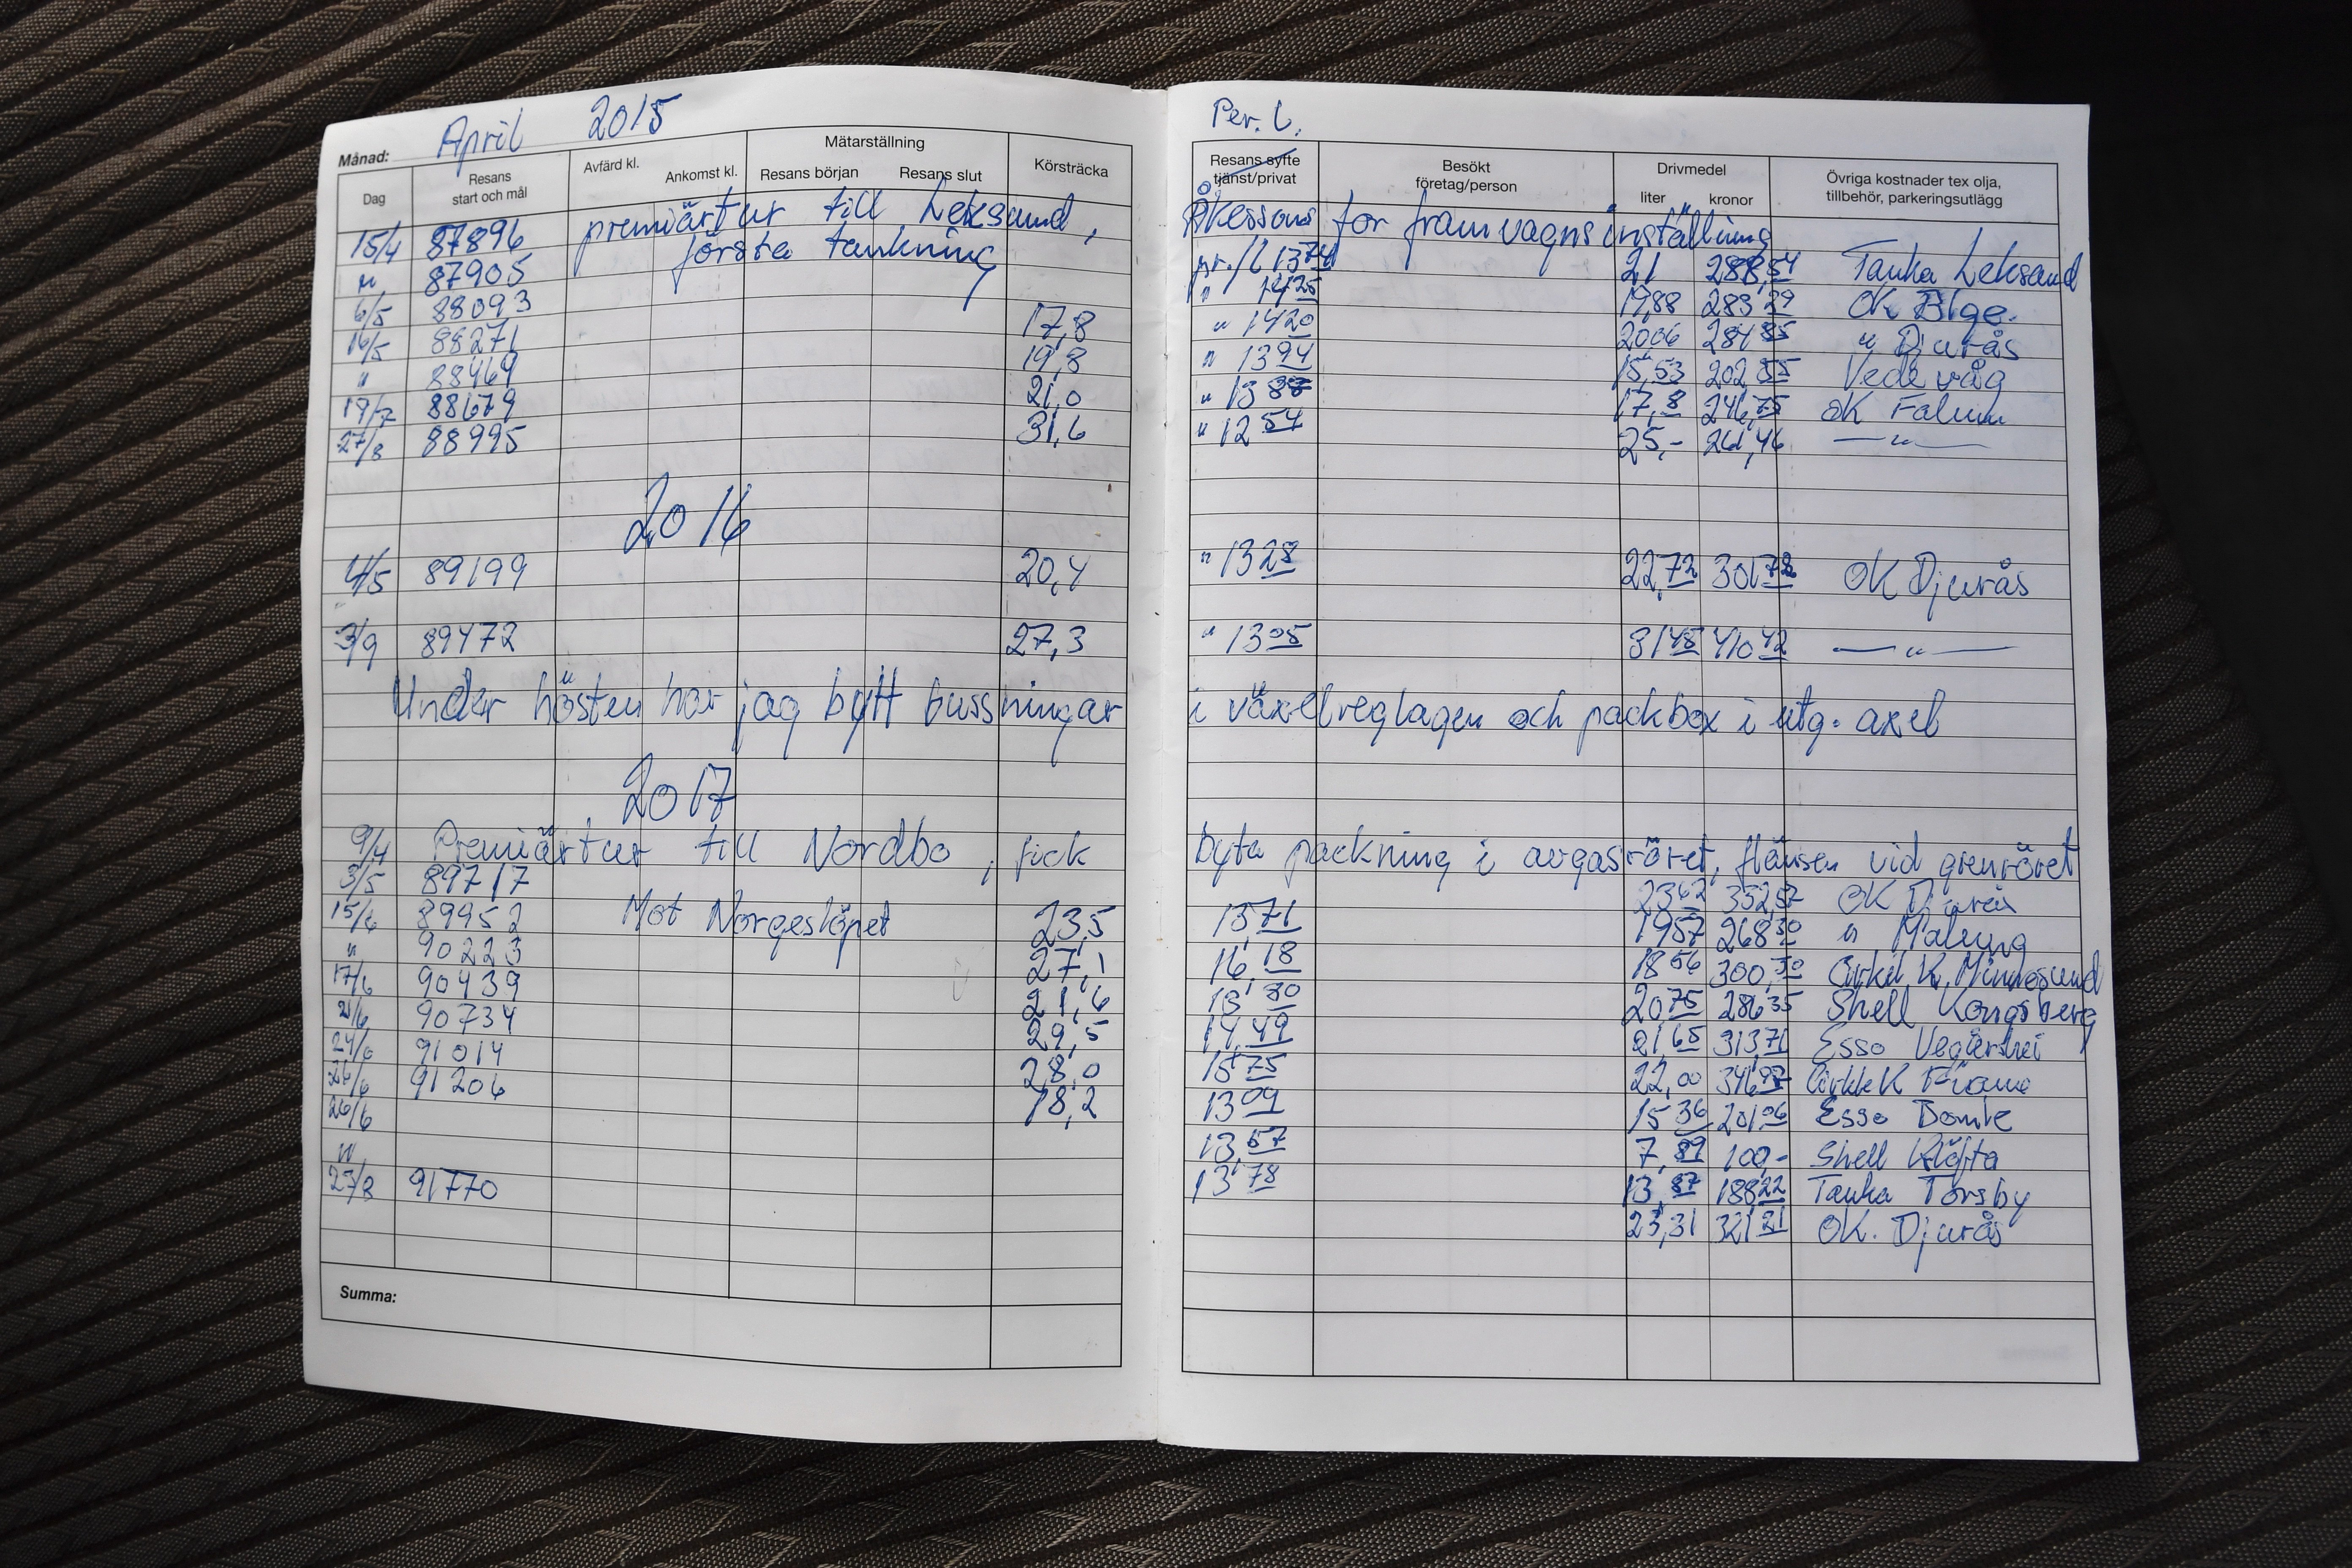 April 2015
Månad:
Dag Resans start och mål Avfärd kl. Ankomst kl. Mätarställning Resans början Resans slut Körsträcka
15/4 87896 premiärtur till Leksand,
" 87905 första tankning
6/5 88093 17,8
16/5 88271 19,8
" 88469 21,0
19/7 88679 31,6
27/8 88995
2016
4/5 89199 20,4
3/9 89472 27,3
Under hösten har jag bytt bussningar
2017
9/4 Premiärtur till Nordbo, fick
3/5 89717
15/6 89952 Mot Norgeslöpet 23,5
" 90223 27,1
17/6 90439 21,6
21/6 90734 29,5
24/6 91014 28,0
26/6 91206 19,2
26/6
"
27/8 91770
Summa:
Per. L.
Resans syfte tjänst/privat Besökt företag/person Drivmedel liter kronor Övriga kostnader tex olja, tillbehör, parkeringsutlägg
Åkessons för framvagnsinställning
pr./l 1374 21 288,54 Tanka Leksand
" 1425 19,88 283,29 OK Blge.
" 1420 2006 284 85 " Djurås
" 1394 15,53 202 85 Vedevåg
" 13 87 17,8 246,75 OK Falun
" 12 54 25,- 261,46 — " —
" 1328 22,72 301 72 OK Djurås
" 1305 31 48 410 42 — " —
i växelreglagen och packbox i utg. axel
byta packning i avgasröret, flänsen vid grenröret
23 62 352,57 OK Djurås
13,71 1957 268 30 " Malung
16,18 18 56 300,30 Cirkel K, Minnesund
13,80 20 75 286 35 Shell Kongsberg
14,49 21,65 313 71 Esso Vegårshei
15 75 22,00 346 97 Cirkel K
13 09 15 36 201 06 Esso Dombe
13,67 7,89 100,- Shell Kløfta
13 78 13,87 188 22 Tanka Torsby
23,31 321 21 OK. Djurås